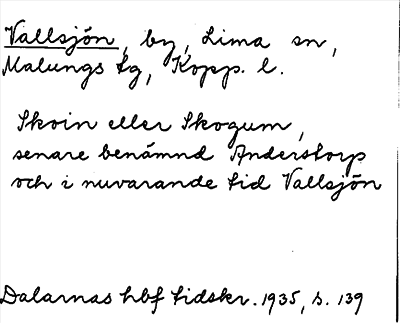 Vallsjön, by, Lima sn,
Malungs tg, Kopp. l.
Skoin eller Skogum,
senare benämnd Anderstorp
och i nuvarande tid Vallsjön
Dalarnas hbf tidskr. 1935, s. 139